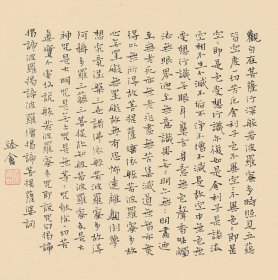 觀自在菩薩行深般若波羅蜜多時照見五蘊
皆空度一切苦厄舍利子色不異空空不異色色即是
空空即是色受想行識亦復如是舍利子是諸法
空相不生不滅不垢不淨不增不減是故空中無色無
受想行識無眼耳鼻舌身意無色聲香味觸
法無眼界乃至無意識界無無明亦無無明盡乃
至無老死亦無老死盡無苦集滅道無智亦無
得以無所得故菩提薩埵依般若波羅蜜多故
心無罣礙無罣礙故無有恐怖遠離顛倒夢
想究竟涅槃三世諸佛依般若波羅蜜多故得
阿耨多羅三藐三菩提故知般若波羅蜜多是大
神咒是大明咒是無上咒是無等等咒能除一切苦
真實不虛故說般若波羅蜜多咒即說咒曰揭諦
揭諦波羅揭諦波羅僧揭諦菩提薩婆訶